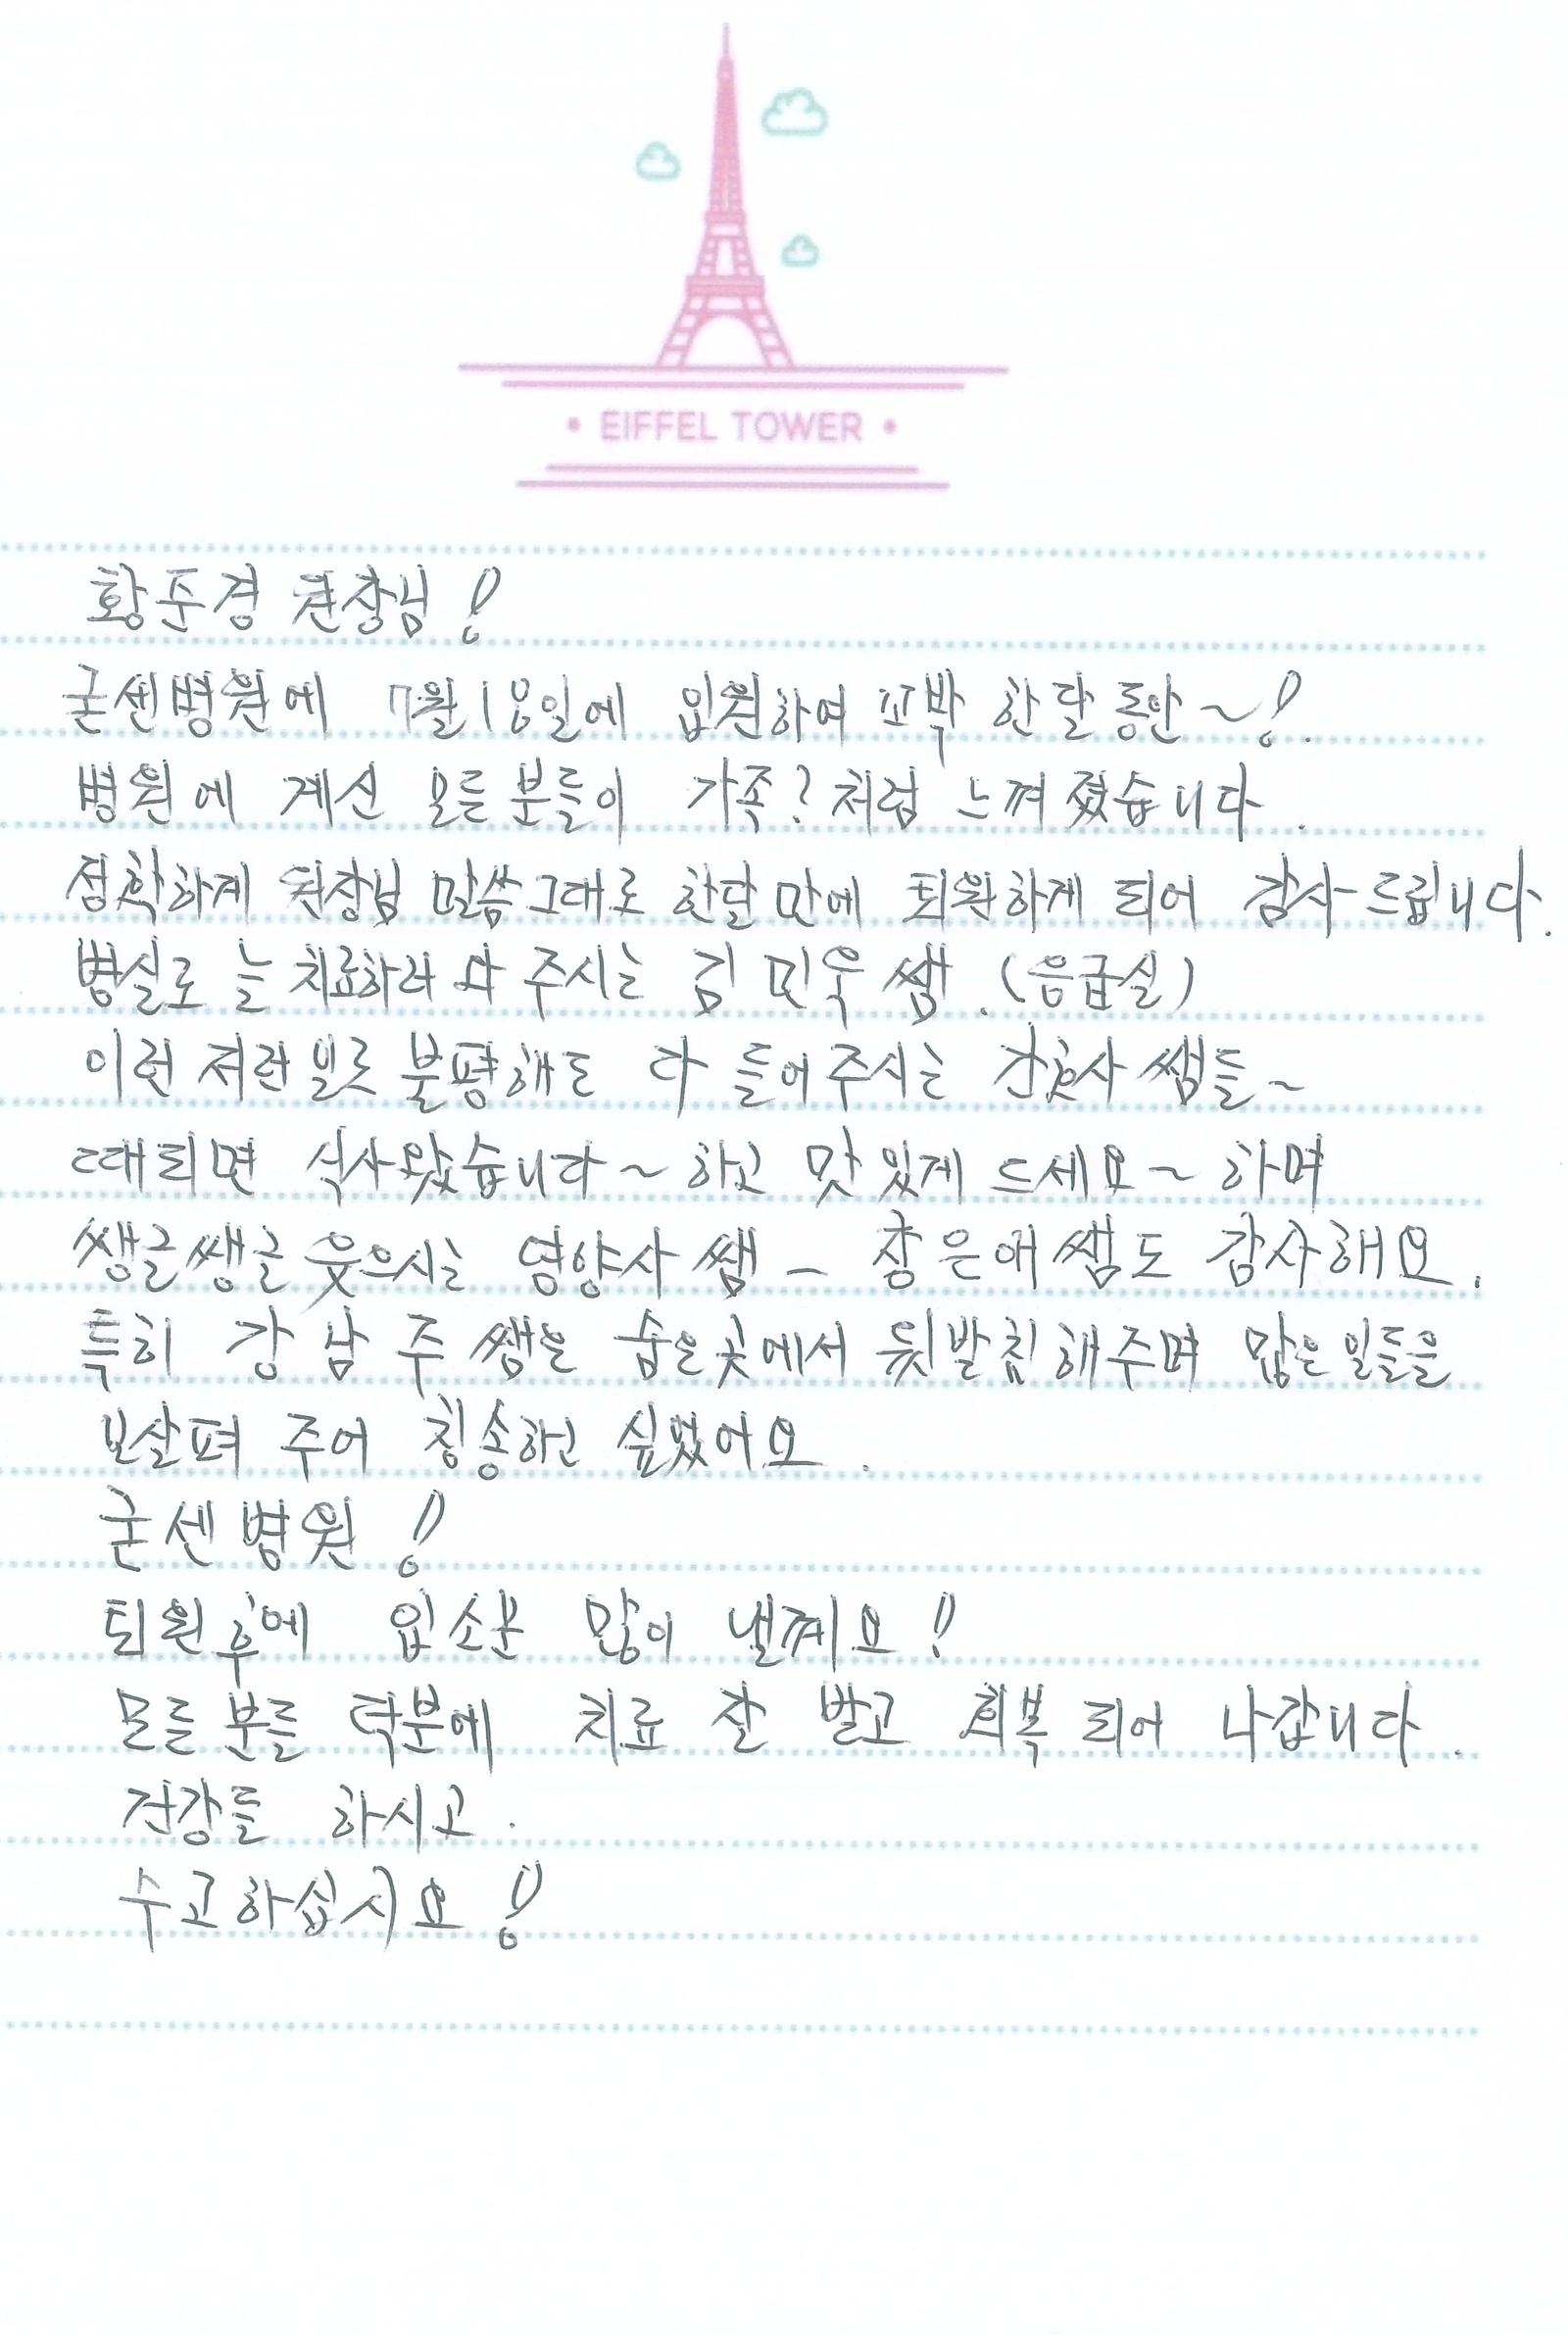 EIFFEL TOWER
황준경 원장님!
굳센병원에 7월18일에 입원하여 꼬박 한달동안~!.
병원에 계신 모든분들이 가족?처럼 느껴졌습니다.
정확하게 원장님 말씀그대로 한달만에 퇴원하게 되어 감사드립니다.
병실로 늘 치료하러 와 주시는 김민욱쌤.(응급실)
이런저런일로 불평해도 다 들어주시는 간호사쌤들~
때되면 식사왔습니다~하고 맛있게 드세요~하며
쌩글쌩글 웃으시는 영양사쌤 - 장은애쌤도 감사해요.
특히 강남주쌤은 숨은곳에서 뒷발침해주며 많은일들을
보살펴 주어 칭송하고 싶었어요.
굳센병원!
퇴원후에 입소문 많이 낼께요!
모든분들 덕분에 치료 잘 받고 회복되어 나갑니다.
건강들 하시고.
수고하십시요!